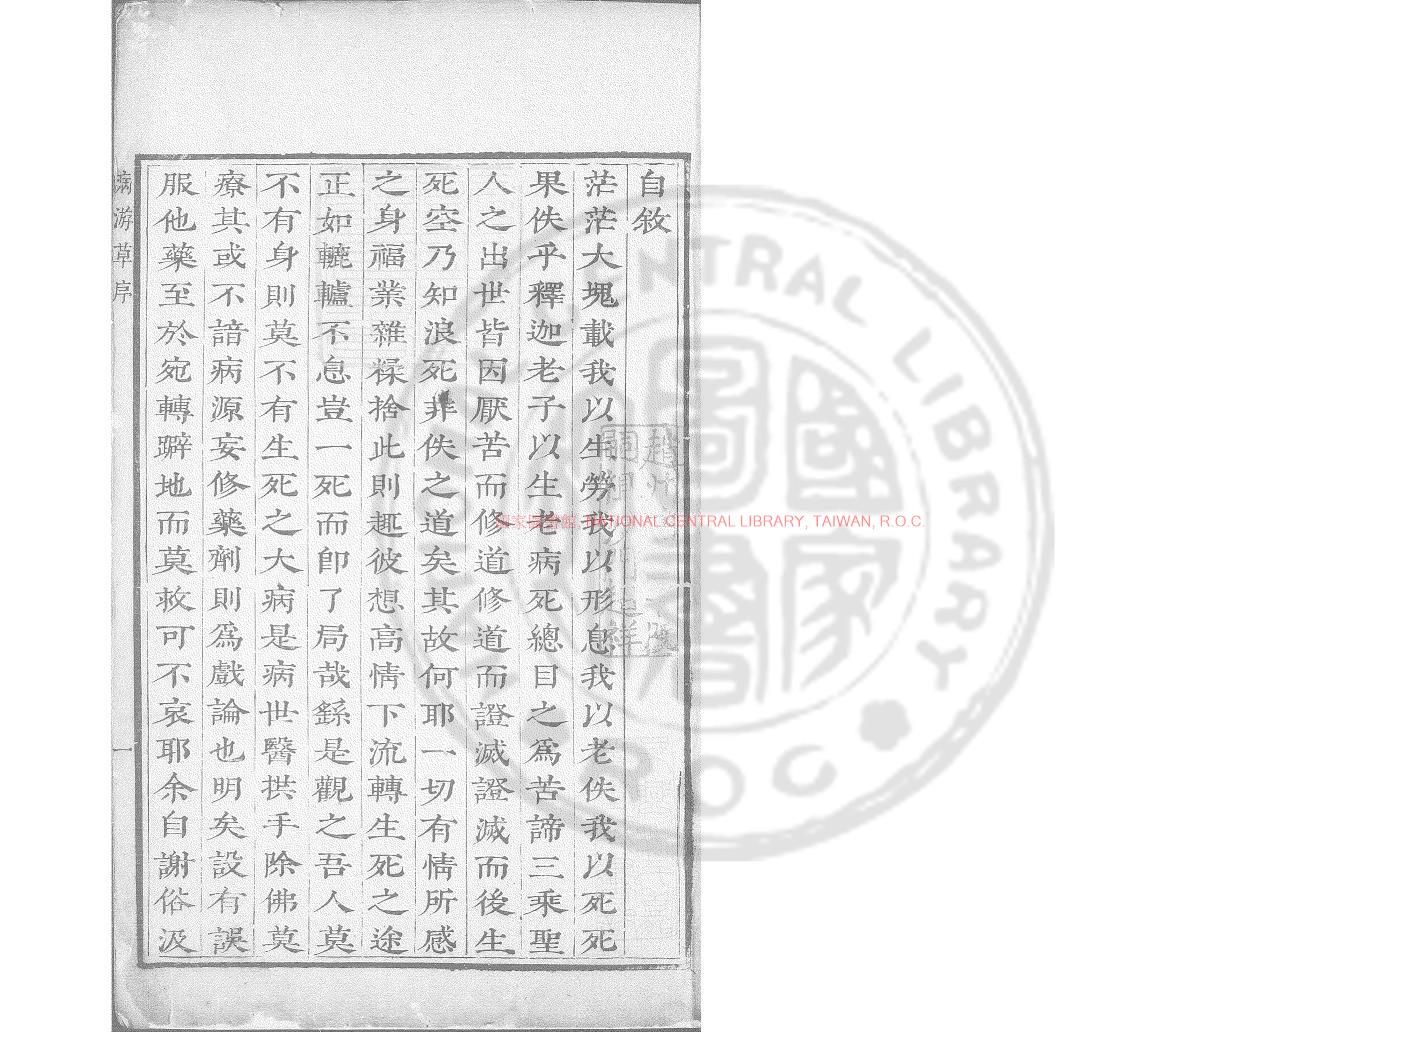 自敘
茫茫大塊載我以生勞我以形息我以老佚我以死死
果佚乎釋迦老子以生老病死總目之爲苦諦三乘聖
人之出世皆因厭苦而修道修道而證滅證滅而後生
死空乃知浪死非佚之道矣其故何耶一切有情所感
之身福業雜糅捨此則趣彼想高情下流轉生死之途
正如轆轤不息豈一死而卽了局哉繇是觀之吾人莫
不有身則莫不有生死之大病是病世醫拱手除佛莫
療其或不諳病源妄修藥劑則爲戲論也明矣設有誤
服他藥至於宛轉躃地而莫救可不哀耶余自謝俗汲
病游草序
一
國家圖書館, NATIONAL CENTRAL LIBRARY, TAIWAN, R.O.C.
CENTRAL LIBRARY
R.O.C
國家圖書館